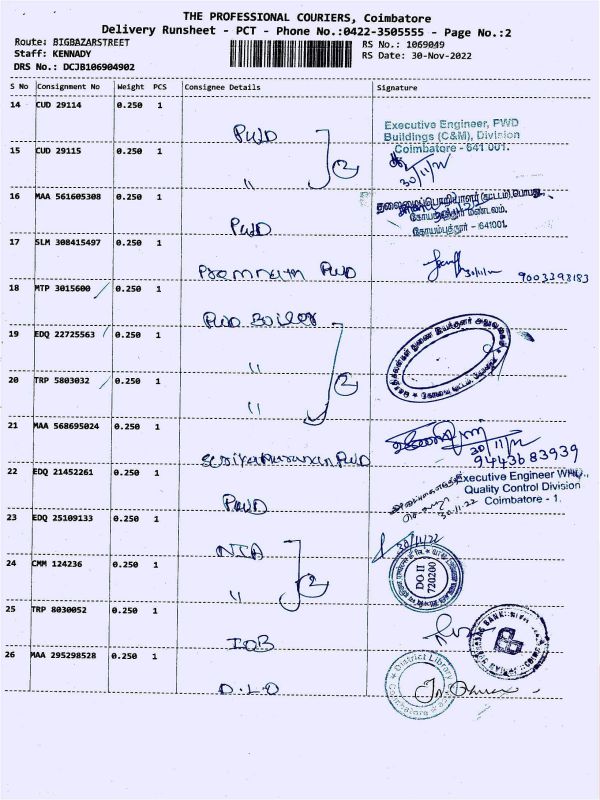 THE PROFESSIONAL COURIERS, Coimbatore
Delivery Runsheet - PCT - Phone No.:0422-3505555 - Page No.:2
Route: BIGBAZARSTREET
Staff: KENNADY
DRS No.: DCJB106904902
RS No.: 1069049
RS Date: 30-Nov-2022
S No Consignment No Weight PCS Consignee Details Signature
14 CUD 29114 0.250 1
PWD
Executive Engineer, PWD
Buildings (C&M), Division
Coimbatore - 641 001.
30/11/22
15 CUD 29115 0.250 1
"
2
16 MAA 561605308 0.250 1
PWD
கோயம்புத்தூர் மண்டலம்.
கோயம்புத்தூர் -641001.
17 SLM 308415497 0.250 1
PWD
30/11/22
9003393183
18 MTP 3015600 0.250 1
PWD Boiler
19 EDQ 22725563 0.250 1
"
20 TRP 5803032 0.250 1
"
2
21 MAA 568695024 0.250 1
PWD
30/11/22
9443683939
22 EDQ 21452261 0.250 1
PWD
Executive Engineer
Quality Control Division
Coimbatore - 1.
30.11.22
23 EDQ 25109133 0.250 1
30/11/22
24 CMM 124236 0.250 1
"
2
DO II
720200
25 TRP 8030052 0.250 1
IOB
26 MAA 295298528 0.250 1
D.L.O
District Library